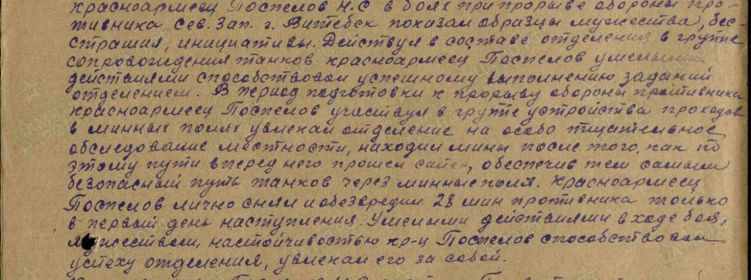 Красноармеец Поспелов Н.С в боях при прорыве обороны про-
тивника Сев. Зап. г. Витебск показал образцы мужества, бес-
страшия, инициативы. Действуя в составе отделения в группе
сопровождения танков красноармеец Поспелов умелыми
действиями способствовал успешному выполнению заданий
отделением. В период подготовки к прорыву обороны противника
красноармеец Поспелов участвуя в группе устройства проходов
в минных полях увлекал отделение на особо тщательное
обследование местности, находил мины после того, как по
этому пути вперед него прошел сапер, обеспечив тем самым
безопасный путь танков через минные поля. Красноармеец
Поспелов лично снял и обезвредил 28 мин противника только
в первый день наступления. Умелыми действиями в ходе боя,
мужеством, настойчивостью кр-ц Поспелов способствовал
успеху отделения, увлекал его за собой.